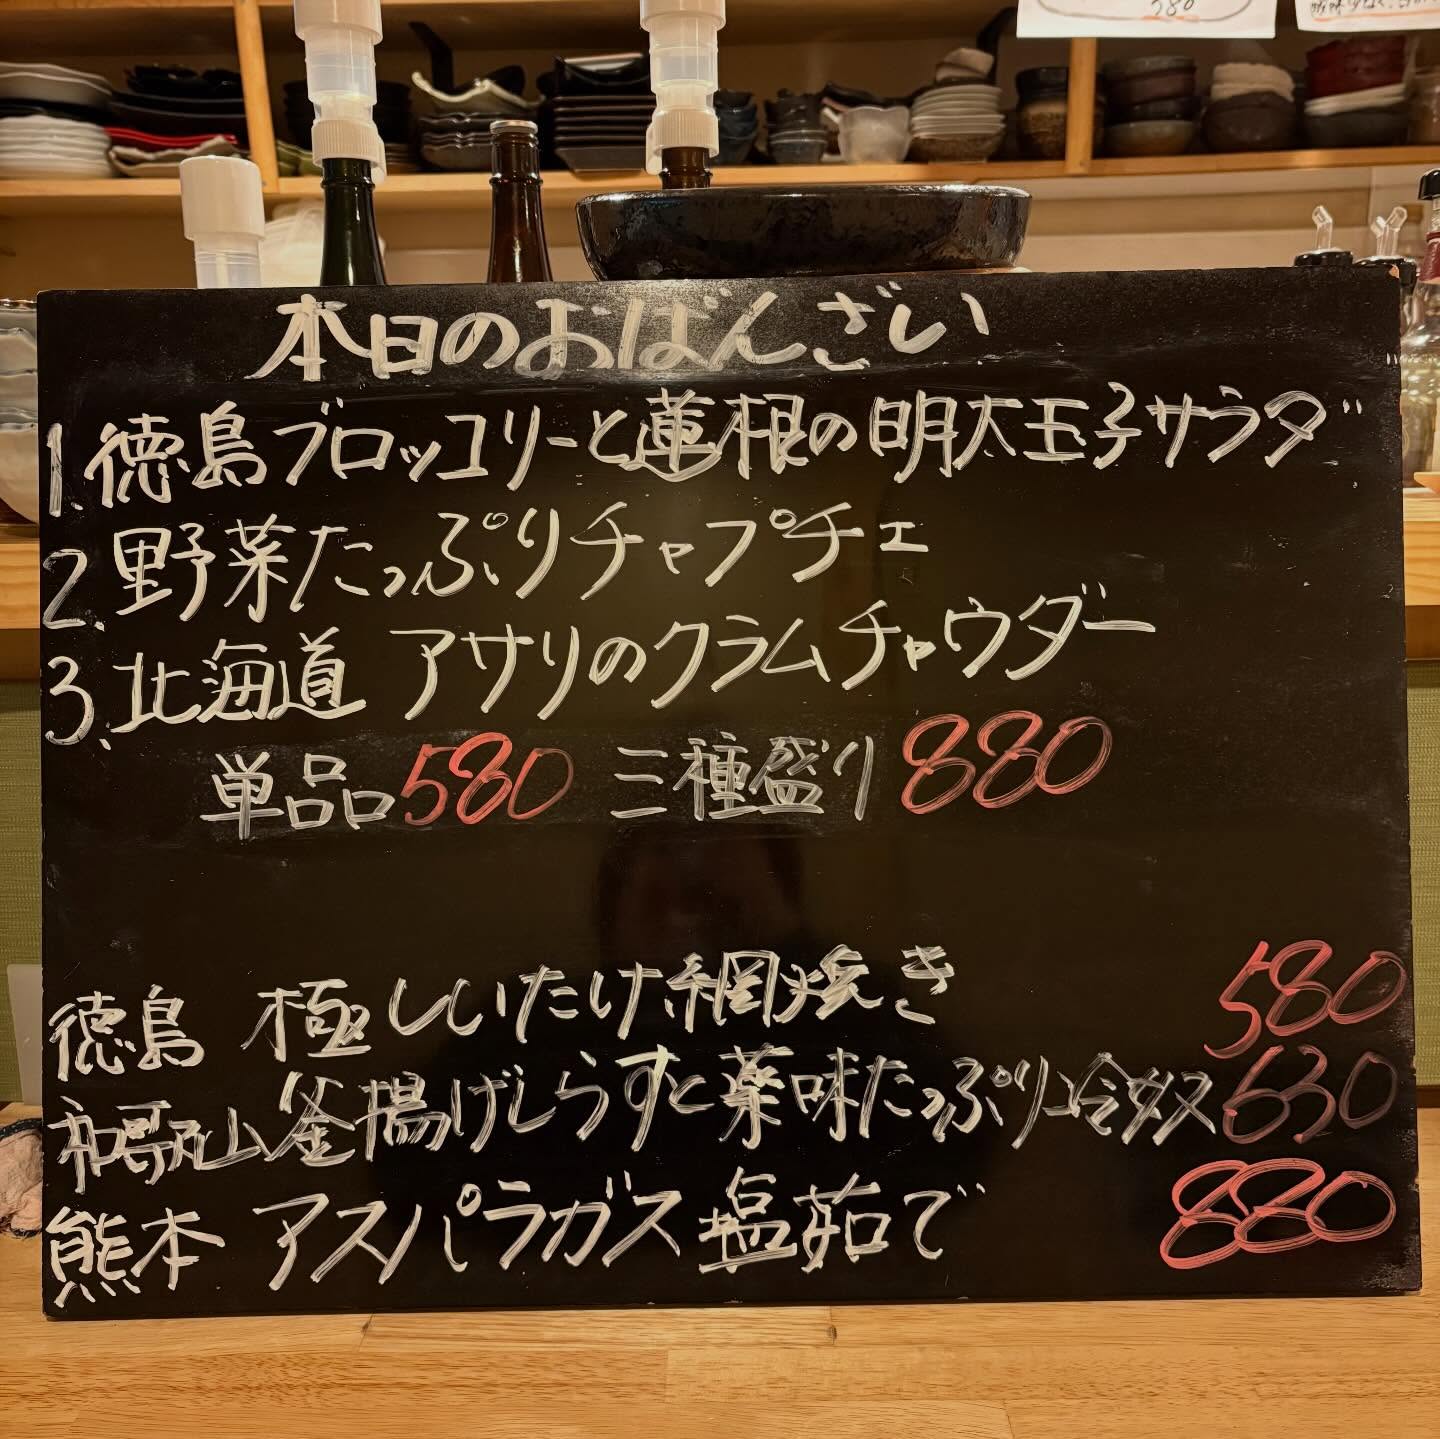 580
本日のおばんざい
1.徳島ブロッコリーと蓮根の明太玉子サラダ
2.野菜たっぷりチャプチェ
3.北海道 アサリのクラムチャウダー
単品580 三種盛り880
徳島 極しいたけ網焼き 580
和歌山釜揚げしらすと薬味たっぷり冷奴 630
熊本 アスパラガス塩茹で 880